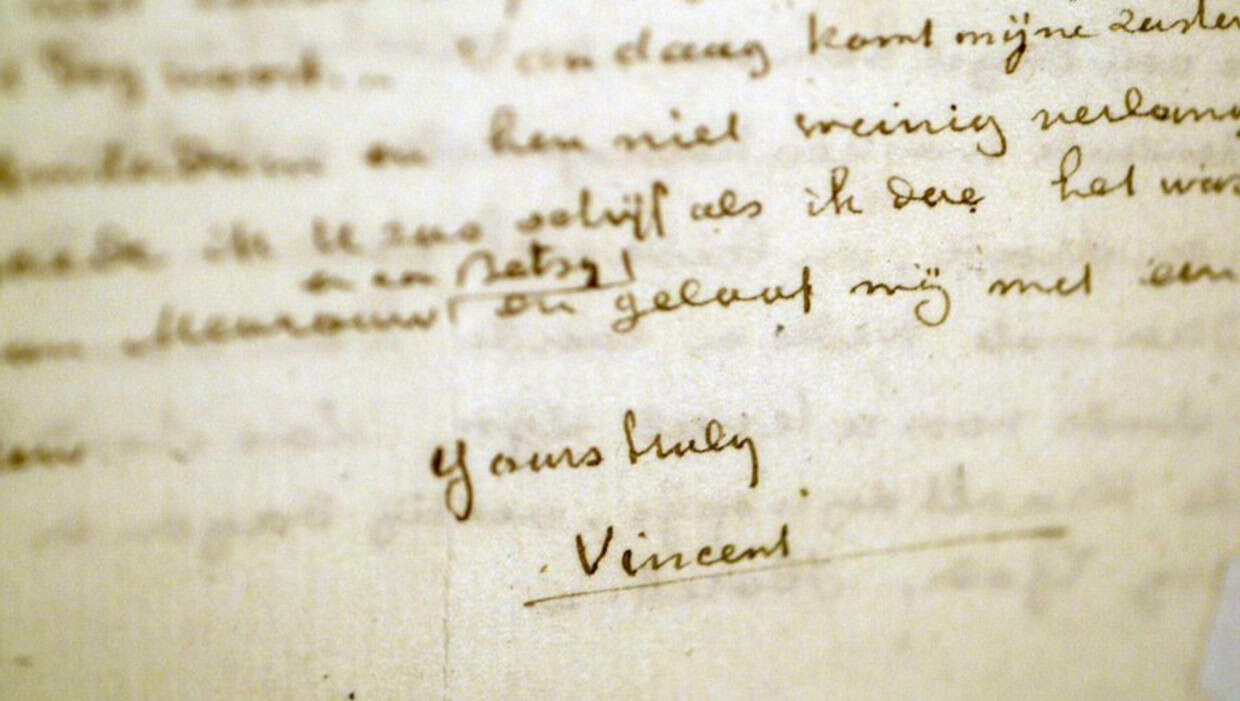 Van daag komt mijne zuster
en ben niet weinig verlang
ik U zoo schrijf als ik doe het was
en aan Betsy
Mevrouw en geloof mij met een
Yours truly
Vincent